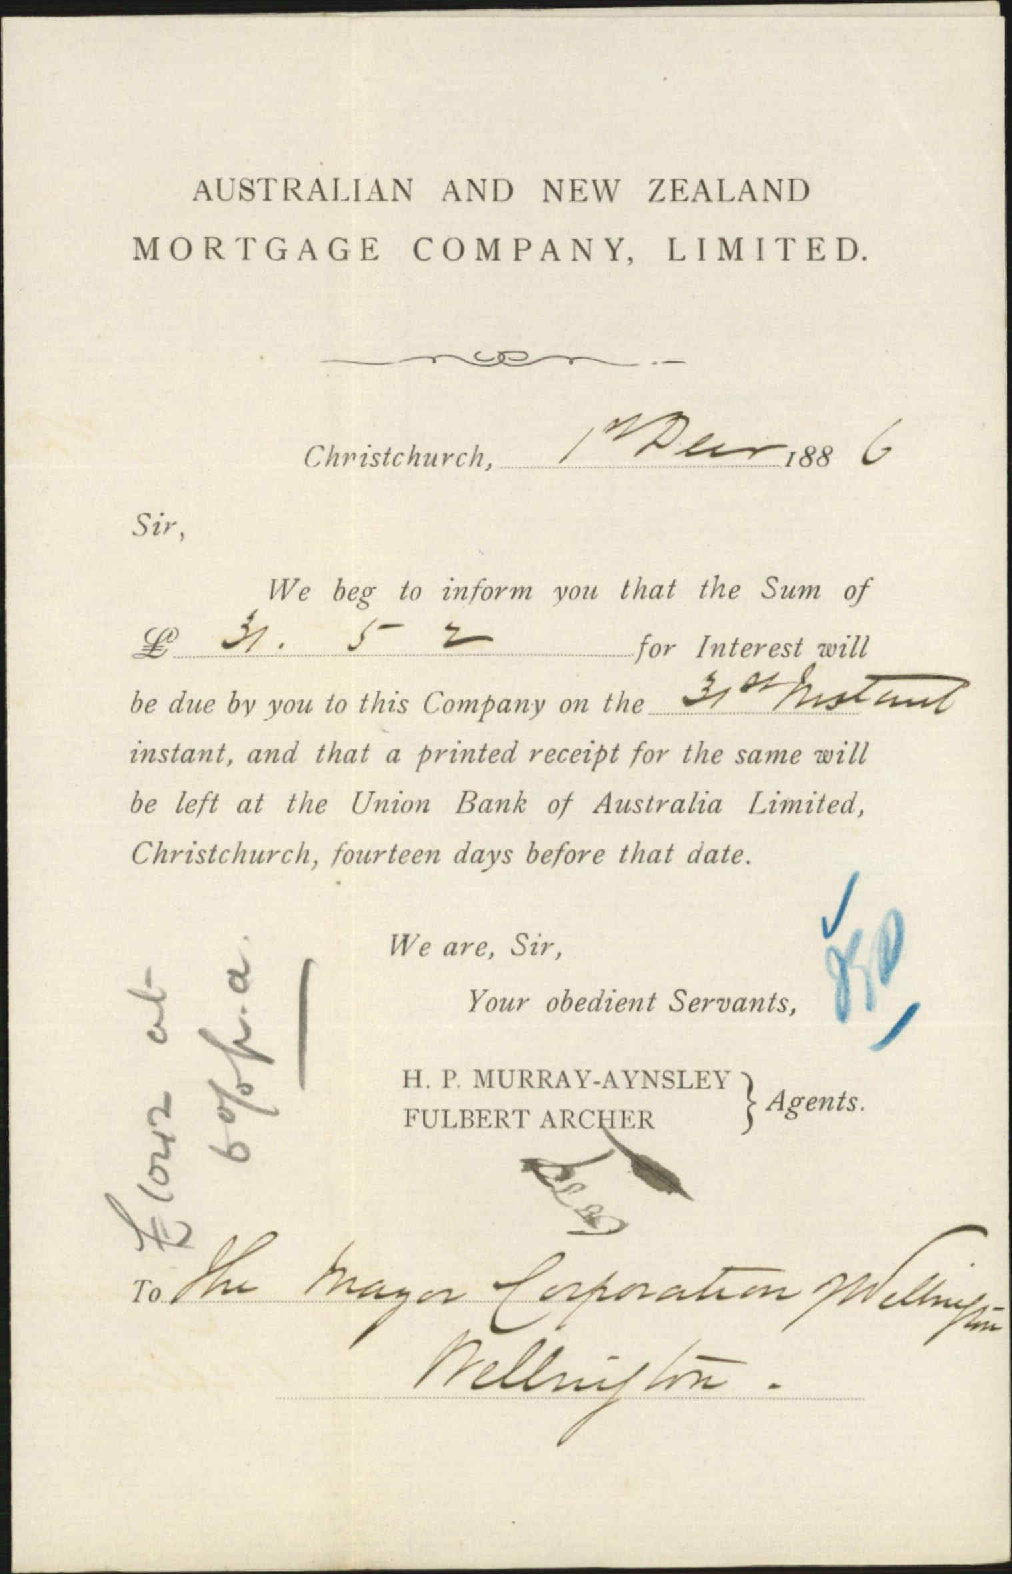 AUSTRALIAN AND NEW ZEALAND
MORTGAGE COMPANY, LIMITED.
Christchurch, 1st Decr 1886
Sir,
We beg to inform you that the Sum of
£ 31. 5 2 for Interest will
be due by you to this Company on the 31st Instant
instant, and that a printed receipt for the same will
be left at the Union Bank of Australia Limited,
Christchurch, fourteen days before that date.
We are, Sir,
Your obedient Servants,
H. P. MURRAY-AYNSLEY
FULBERT ARCHER
Agents.
£1042 at
6% p.a.
To The Mayor Corporation of Wellington
Wellington.